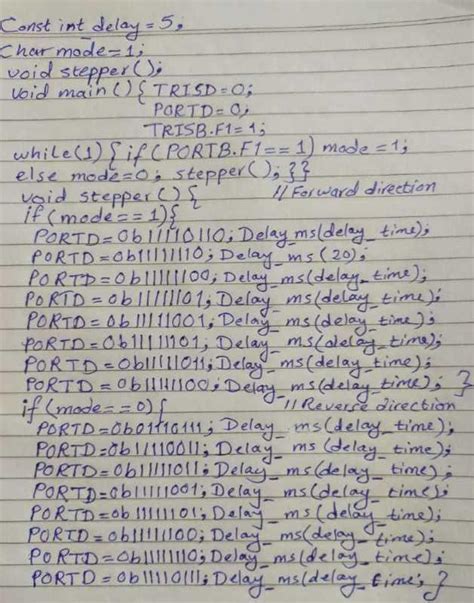 Const int delay=5;
Char mode=1;
void stepper();
void main(){ TRISD=0;
PORTD=0;
TRISB.F1=1;
while(1) { if (PORTB.F1==1) mode =1;
else mode=0; stepper(); }}
void stepper() { //Forward direction
if(mode==1){
PORTD=0b11110110; Delay_ms(delay_time);
PORTD=0b11111110; Delay_ms (20);
PORTD=0b11111100; Delay_ms(delay_time);
PORTD=0b11111101; Delay_ms(delay_time);
PORTD=0b11111001; Delay_ms(delay_time);
PORTD=0b11111101; Delay_ms(delay_time);
PORTD=0b11111011; Delay_ms(delay_time);
PORTD=0b11111100; Delay_ms(delay_time); }
if(mode==0){ //Reverse direction
PORTD=0b01110111; Delay_ms(delay_time);
PORTD=0b11110011; Delay_ms(delay_time);
PORTD=0b11111011; Delay_ms(delay_time);
PORTD=0b11111001; Delay_ms(delay_time);
PORTD=0b11111101; Delay_ms(delay_time);
PORTD=0b11111100; Delay_ms(delay_time);
PORTD=0b11111110; Delay_ms(delay_time);
PORTD=0b11110111; Delay_ms(delay_time; }